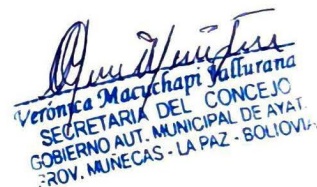 Verónica Macuchapi Yallurana
SECRETARIA DEL CONCEJO
GOBIERNO AUT. MUNICIPAL DE AYAT.
PROV. MUÑECAS - LA PAZ - BOLIOVIA